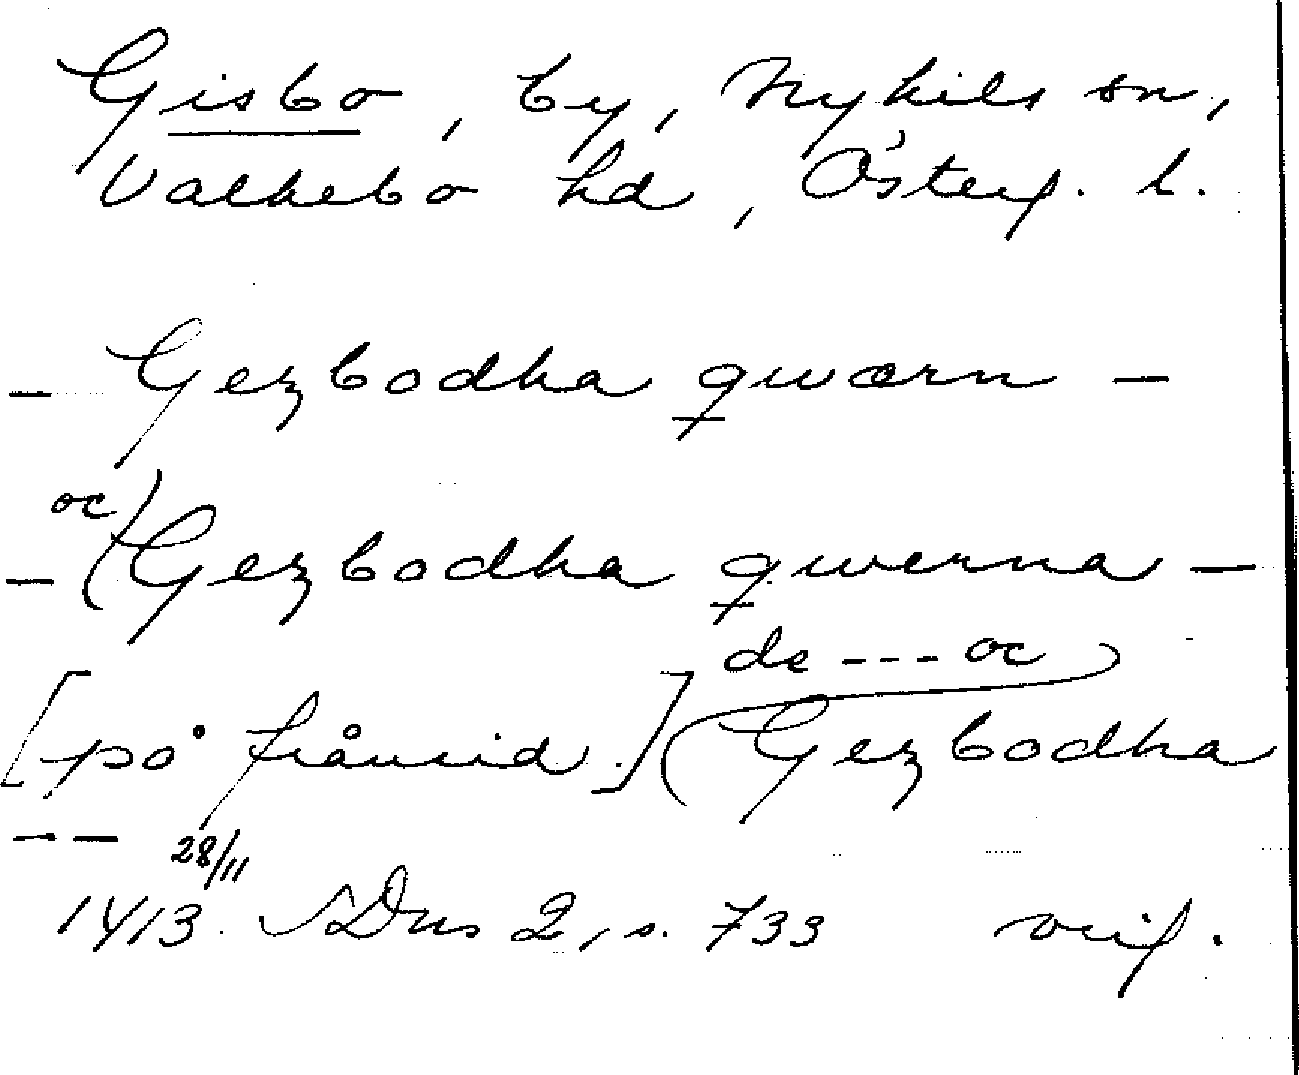 Gisbo, by, Nykils sn,
Valkebo hd, Österg. l.
– Gezbodha qwærn –
oc
– (Gezbodha qwerna –
de --- oc
[på frånsid.] (Gezbodha
– –
28/11
1413 SDns 2, s. 733 orig.